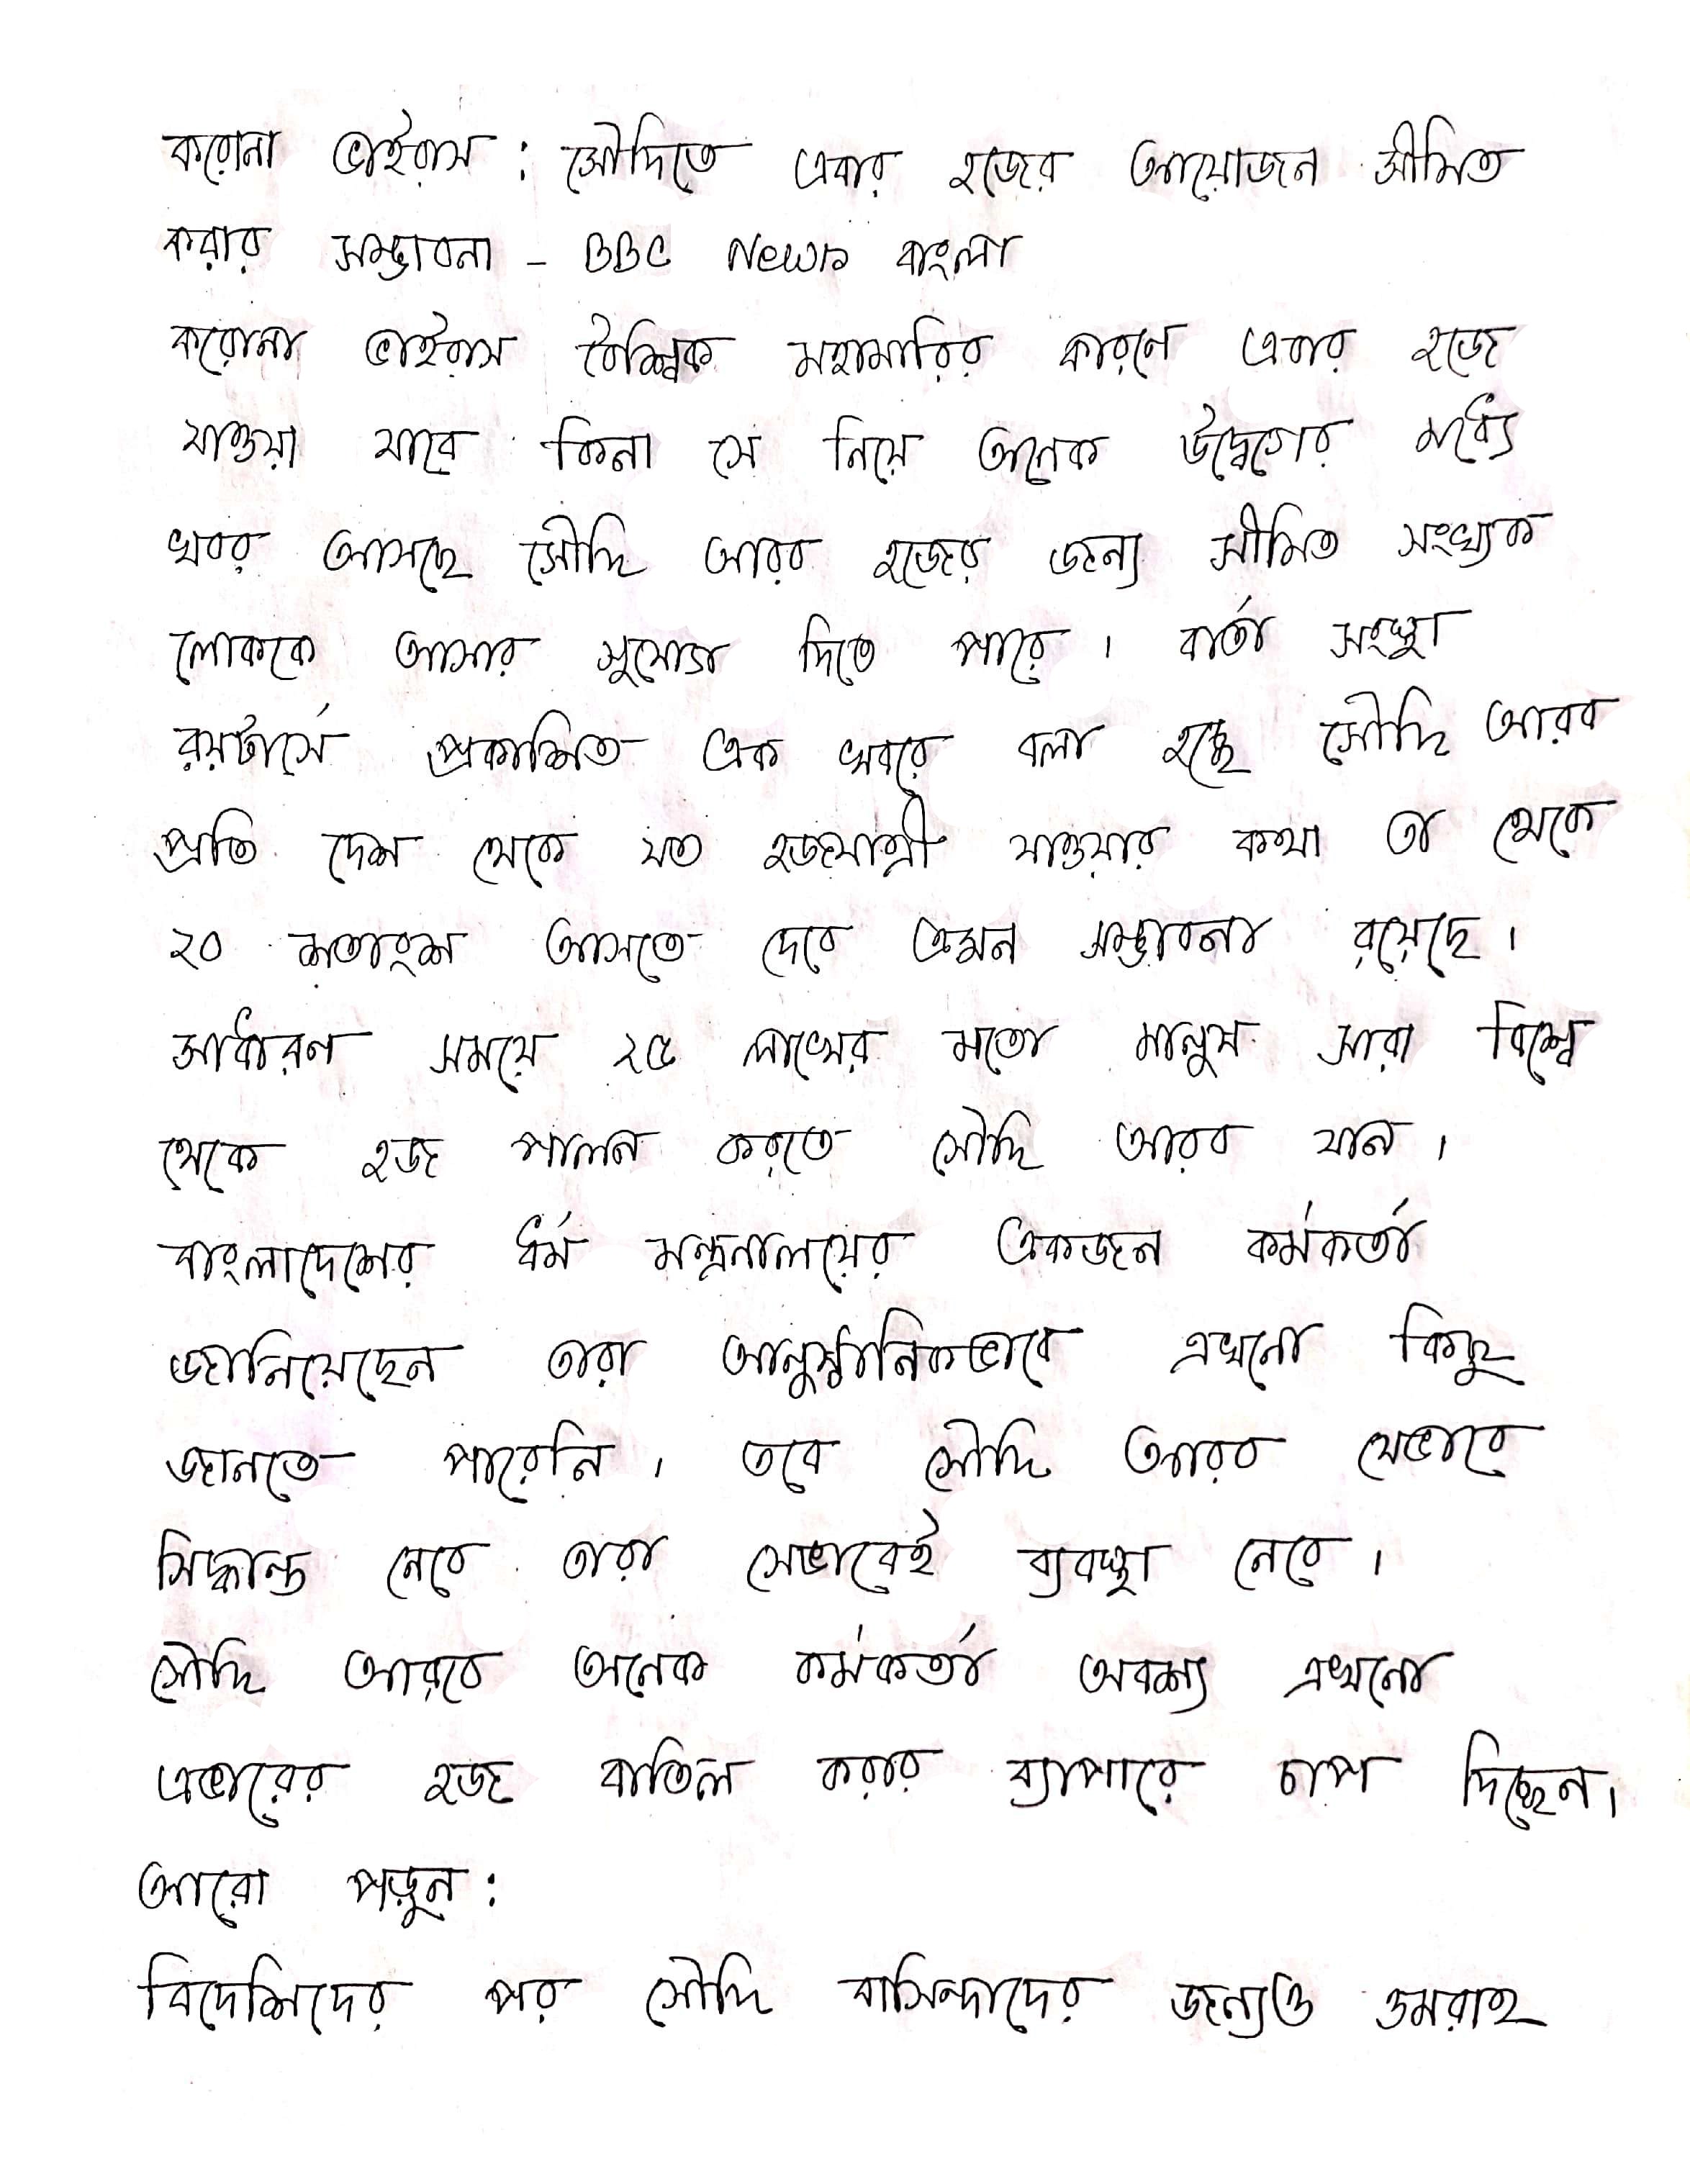 করোনা ভাইরাস : সৌদিতে এবার হজের আয়োজন সীমিত
করার সম্ভাবনা - BBC News বাংলা
করোনা ভাইরাস বৈশ্বিক মহামারির কারণে এবার হজে
যাওয়া যাবে কিনা সে নিয়ে অনেক উদ্বেগের মধ্যে
খবর আসছে সৌদি আরব হজের জন্য সীমিত সংখ্যক
লোককে আসার সুযোগ দিতে পারে । বার্তা সংস্থা
রয়টার্সে প্রকাশিত এক খবরে বলা হচ্ছে সৌদি আরব
প্রতি দেশ থেকে যত হজযাত্রী যাওয়ার কথা তা থেকে
২০ শতাংশ আসতে দেবে এমন সম্ভাবনা রয়েছে ।
সাধারণ সময়ে ২৫ লাখের মতো মানুষ সারা বিশ্বে
থেকে হজ পালন করতে সৌদি আরব যান ।
বাংলাদেশের ধর্ম মন্ত্রনালয়ের একজন কর্মকর্তা
জানিয়েছেন তারা আনুষ্ঠানিকভাবে এখনো কিছু
জানতে পারেনি । তবে সৌদি আরব যেভাবে
সিদ্ধান্ত নেবে তারা সেভাবেই ব্যবস্থা নেবে ।
সৌদি আরবে অনেক কর্মকর্তা অবশ্য এখনো
এভারের হজ বাতিল করার ব্যাপারে চাপ দিচ্ছেন ।
আরো পড়ুন :
বিদেশিদের পর সৌদি বাসিন্দাদের জন্যও ওমরাহ